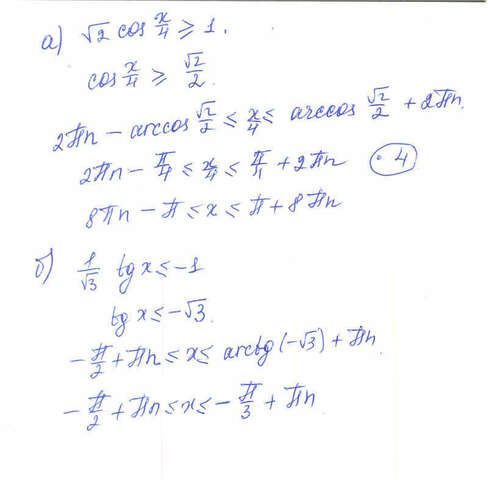 а) √2 cos x/4 ≥ 1.
cos x/4 ≥ √2/2.
2πn − arccos √2/2 ≤ x/4 ≤ arccos √2/2 + 2πn.
2πn − π/4 ≤ x/4 ≤ π/4 + 2πn (· 4)
8πn − π ≤ x ≤ π + 8πn
б) 1/√3 tg x ≤ −1
tg x ≤ −√3.
−π/2 + πn ≤ x ≤ arctg (−√3) + πn.
−π/2 + πn ≤ x ≤ −π/3 + πn